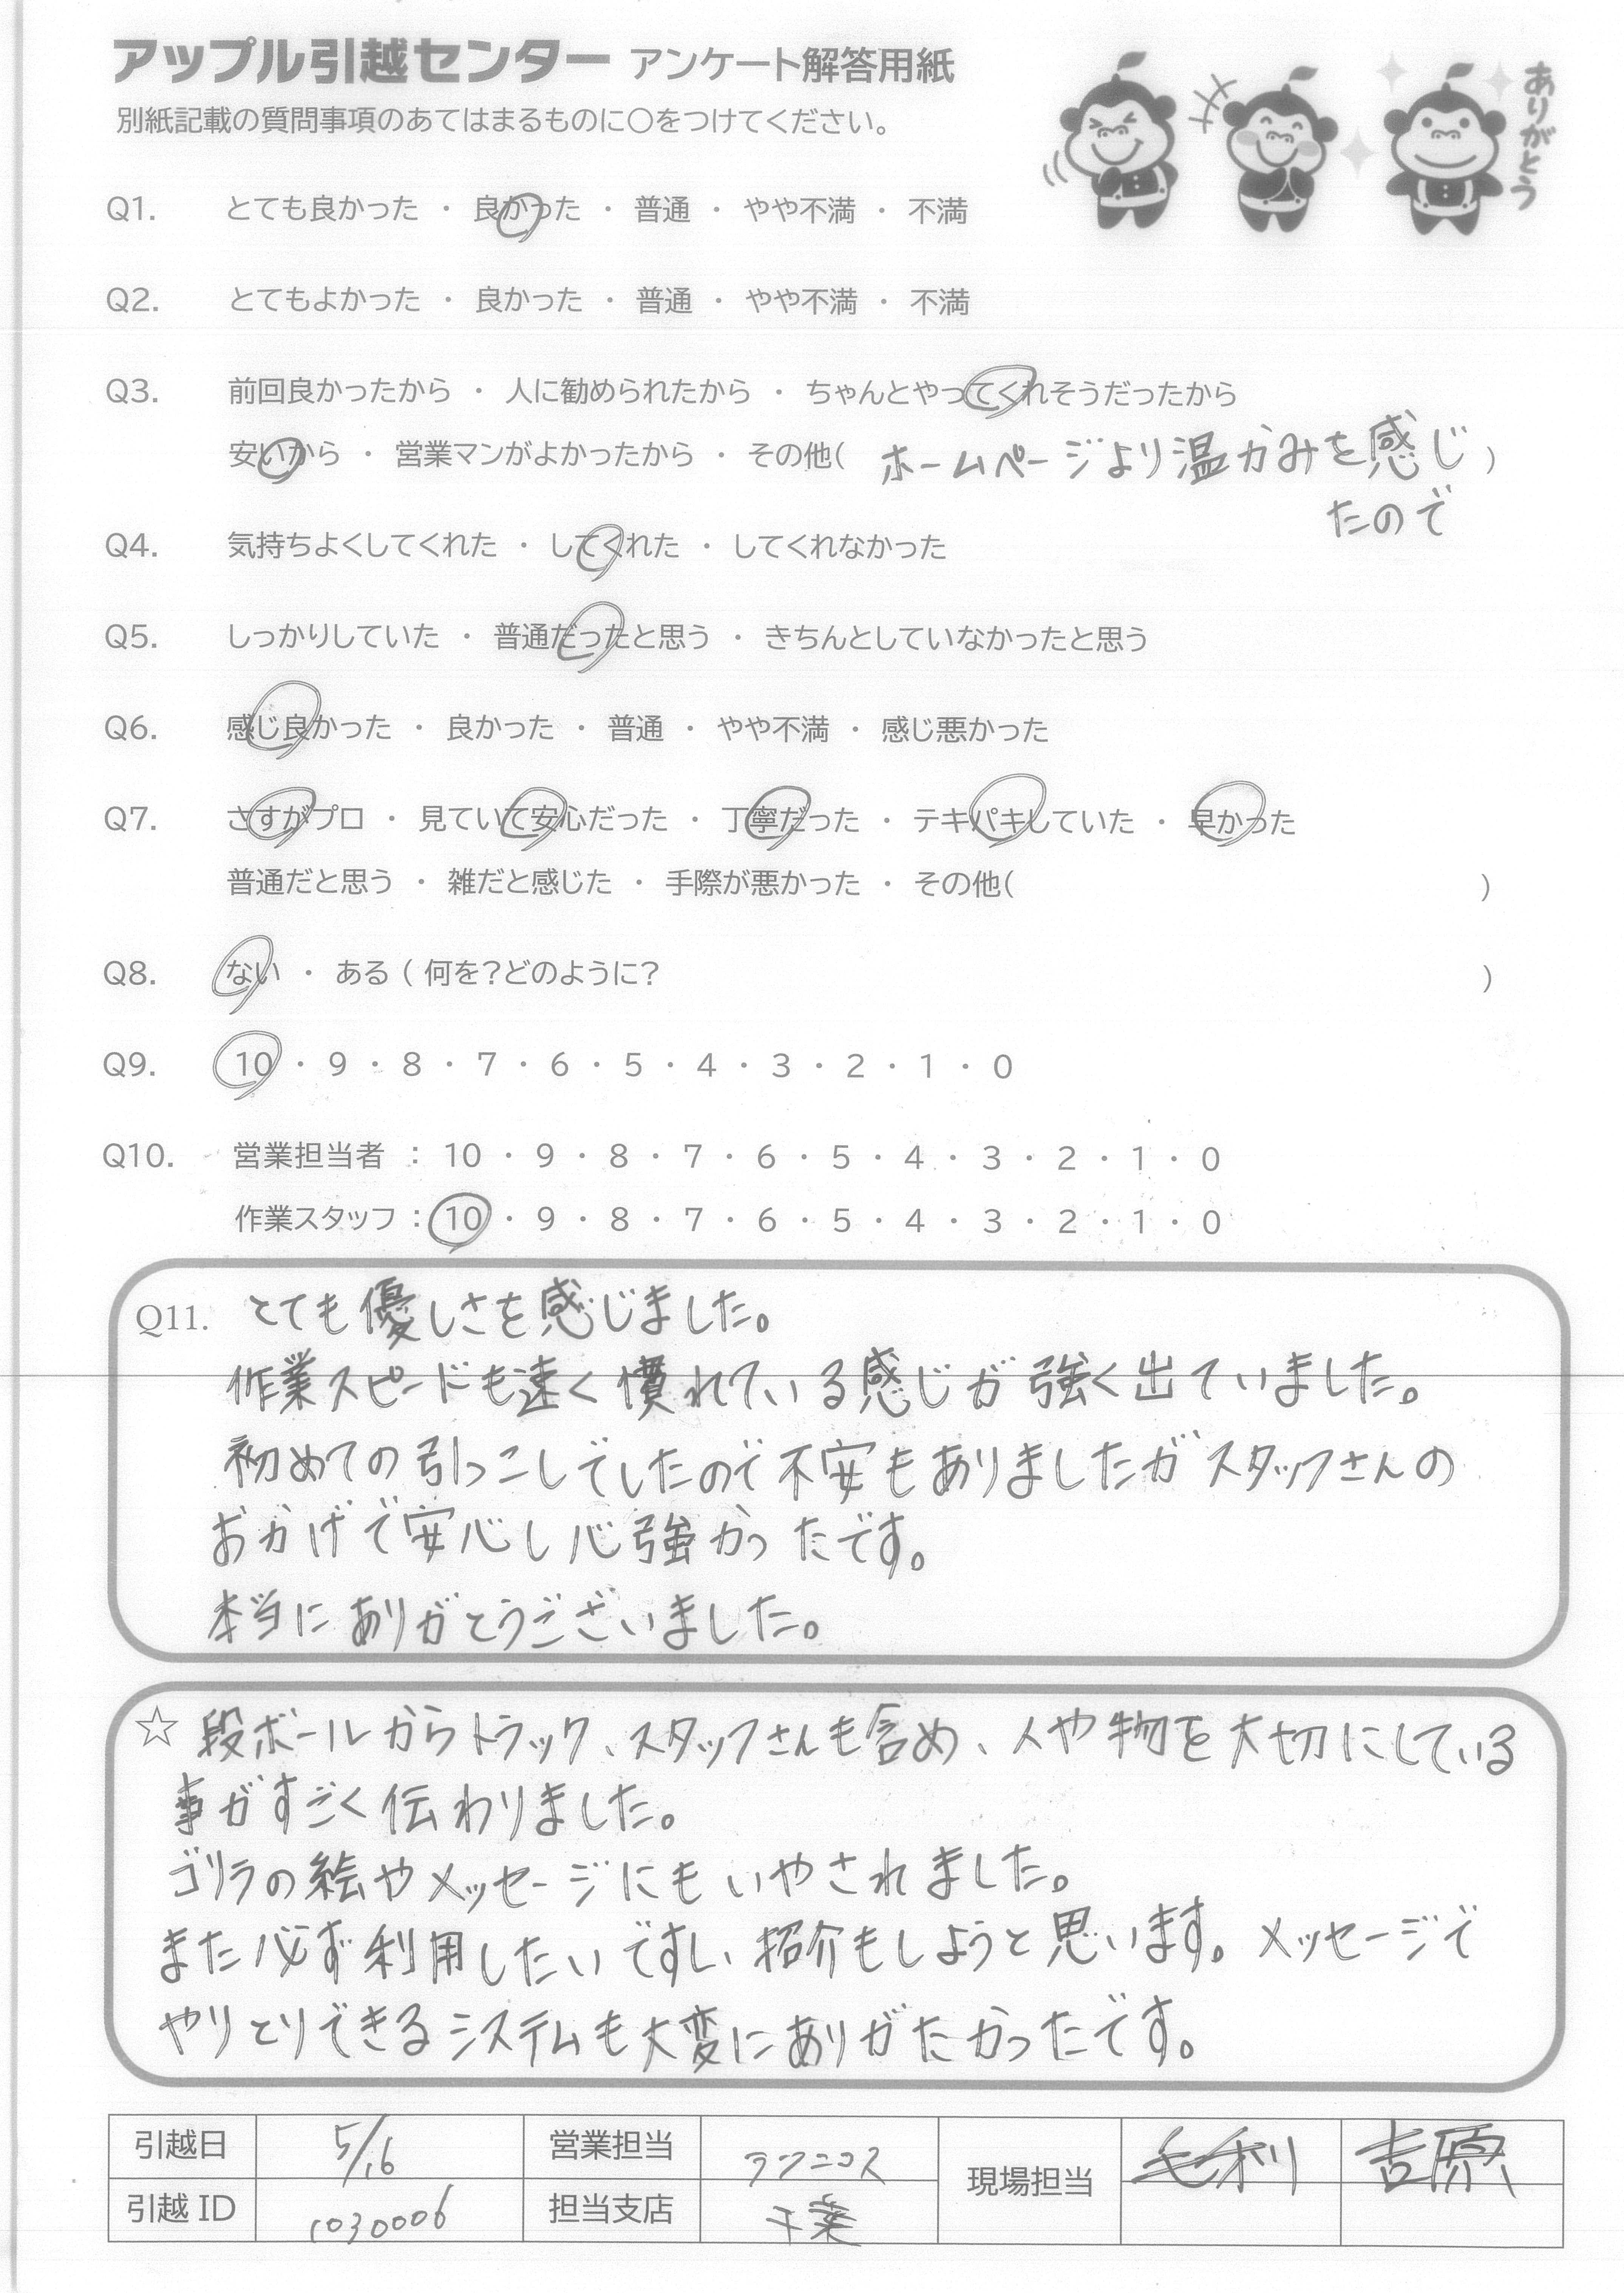 アップル引越センター アンケート解答用紙
別紙記載の質問事項のあてはまるものに〇をつけてください。
ありがとう
Q1. とても良かった ・ 良かった ・ 普通 ・ やや不満 ・ 不満
Q2. とてもよかった ・ 良かった ・ 普通 ・ やや不満 ・ 不満
Q3. 前回良かったから ・ 人に勧められたから ・ ちゃんとやってくれそうだったから
安いから ・ 営業マンがよかったから ・ その他( ホームページより温かみを感じ )
たので
Q4. 気持ちよくしてくれた ・ してくれた ・ してくれなかった
Q5. しっかりしていた ・ 普通だったと思う ・ きちんとしていなかったと思う
Q6. 感じ良かった ・ 良かった ・ 普通 ・ やや不満 ・ 感じ悪かった
Q7. さすがプロ ・ 見ていて安心だった ・ 丁寧だった ・ テキパキしていた ・ 早かった
普通だと思う ・ 雑だと感じた ・ 手際が悪かった ・ その他( )
Q8. ない ・ ある ( 何を?どのように? )
Q9. 10 ・ 9 ・ 8 ・ 7 ・ 6 ・ 5 ・ 4 ・ 3 ・ 2 ・ 1 ・ 0
Q10. 営業担当者 : 10 ・ 9 ・ 8 ・ 7 ・ 6 ・ 5 ・ 4 ・ 3 ・ 2 ・ 1 ・ 0
作業スタッフ : 10 ・ 9 ・ 8 ・ 7 ・ 6 ・ 5 ・ 4 ・ 3 ・ 2 ・ 1 ・ 0
Q11. とても優しさを感じました。
作業スピードも速く慣れている感じが強く出ていました。
初めての引っこしでしたので不安もありましたがスタッフさんの
おかげで安心し心強かったです。
本当にありがとうございました。
☆ 段ボールからトラック、スタッフさんも含め、人や物を大切にしている
事がすごく伝わりました。
ゴリラの絵やメッセージにもいやされました。
また必ず利用したいですし、紹介もしようと思います。メッセージで
やりとりできるシステムも大変にありがたかったです。
引越日 5/16 営業担当 ラクニコス 現場担当 毛利 吉原
引越ID 1030006 担当支店 千葉